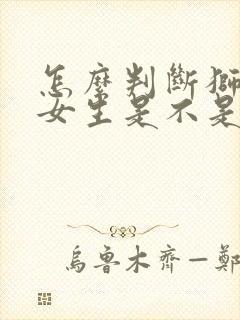 怎麼判斷獅
女生是不是
烏魯木齊—鄭